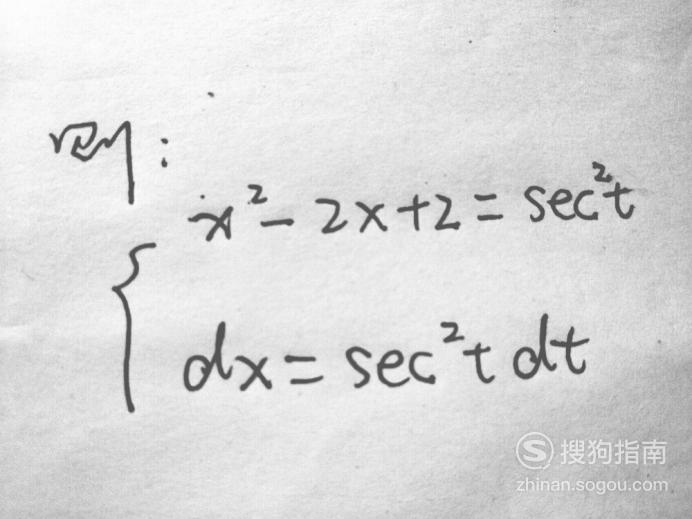 则:
x² - 2x + 2 = sec²t
dx = sec²t dt
S 搜狗指南
zhinan.sogou.com